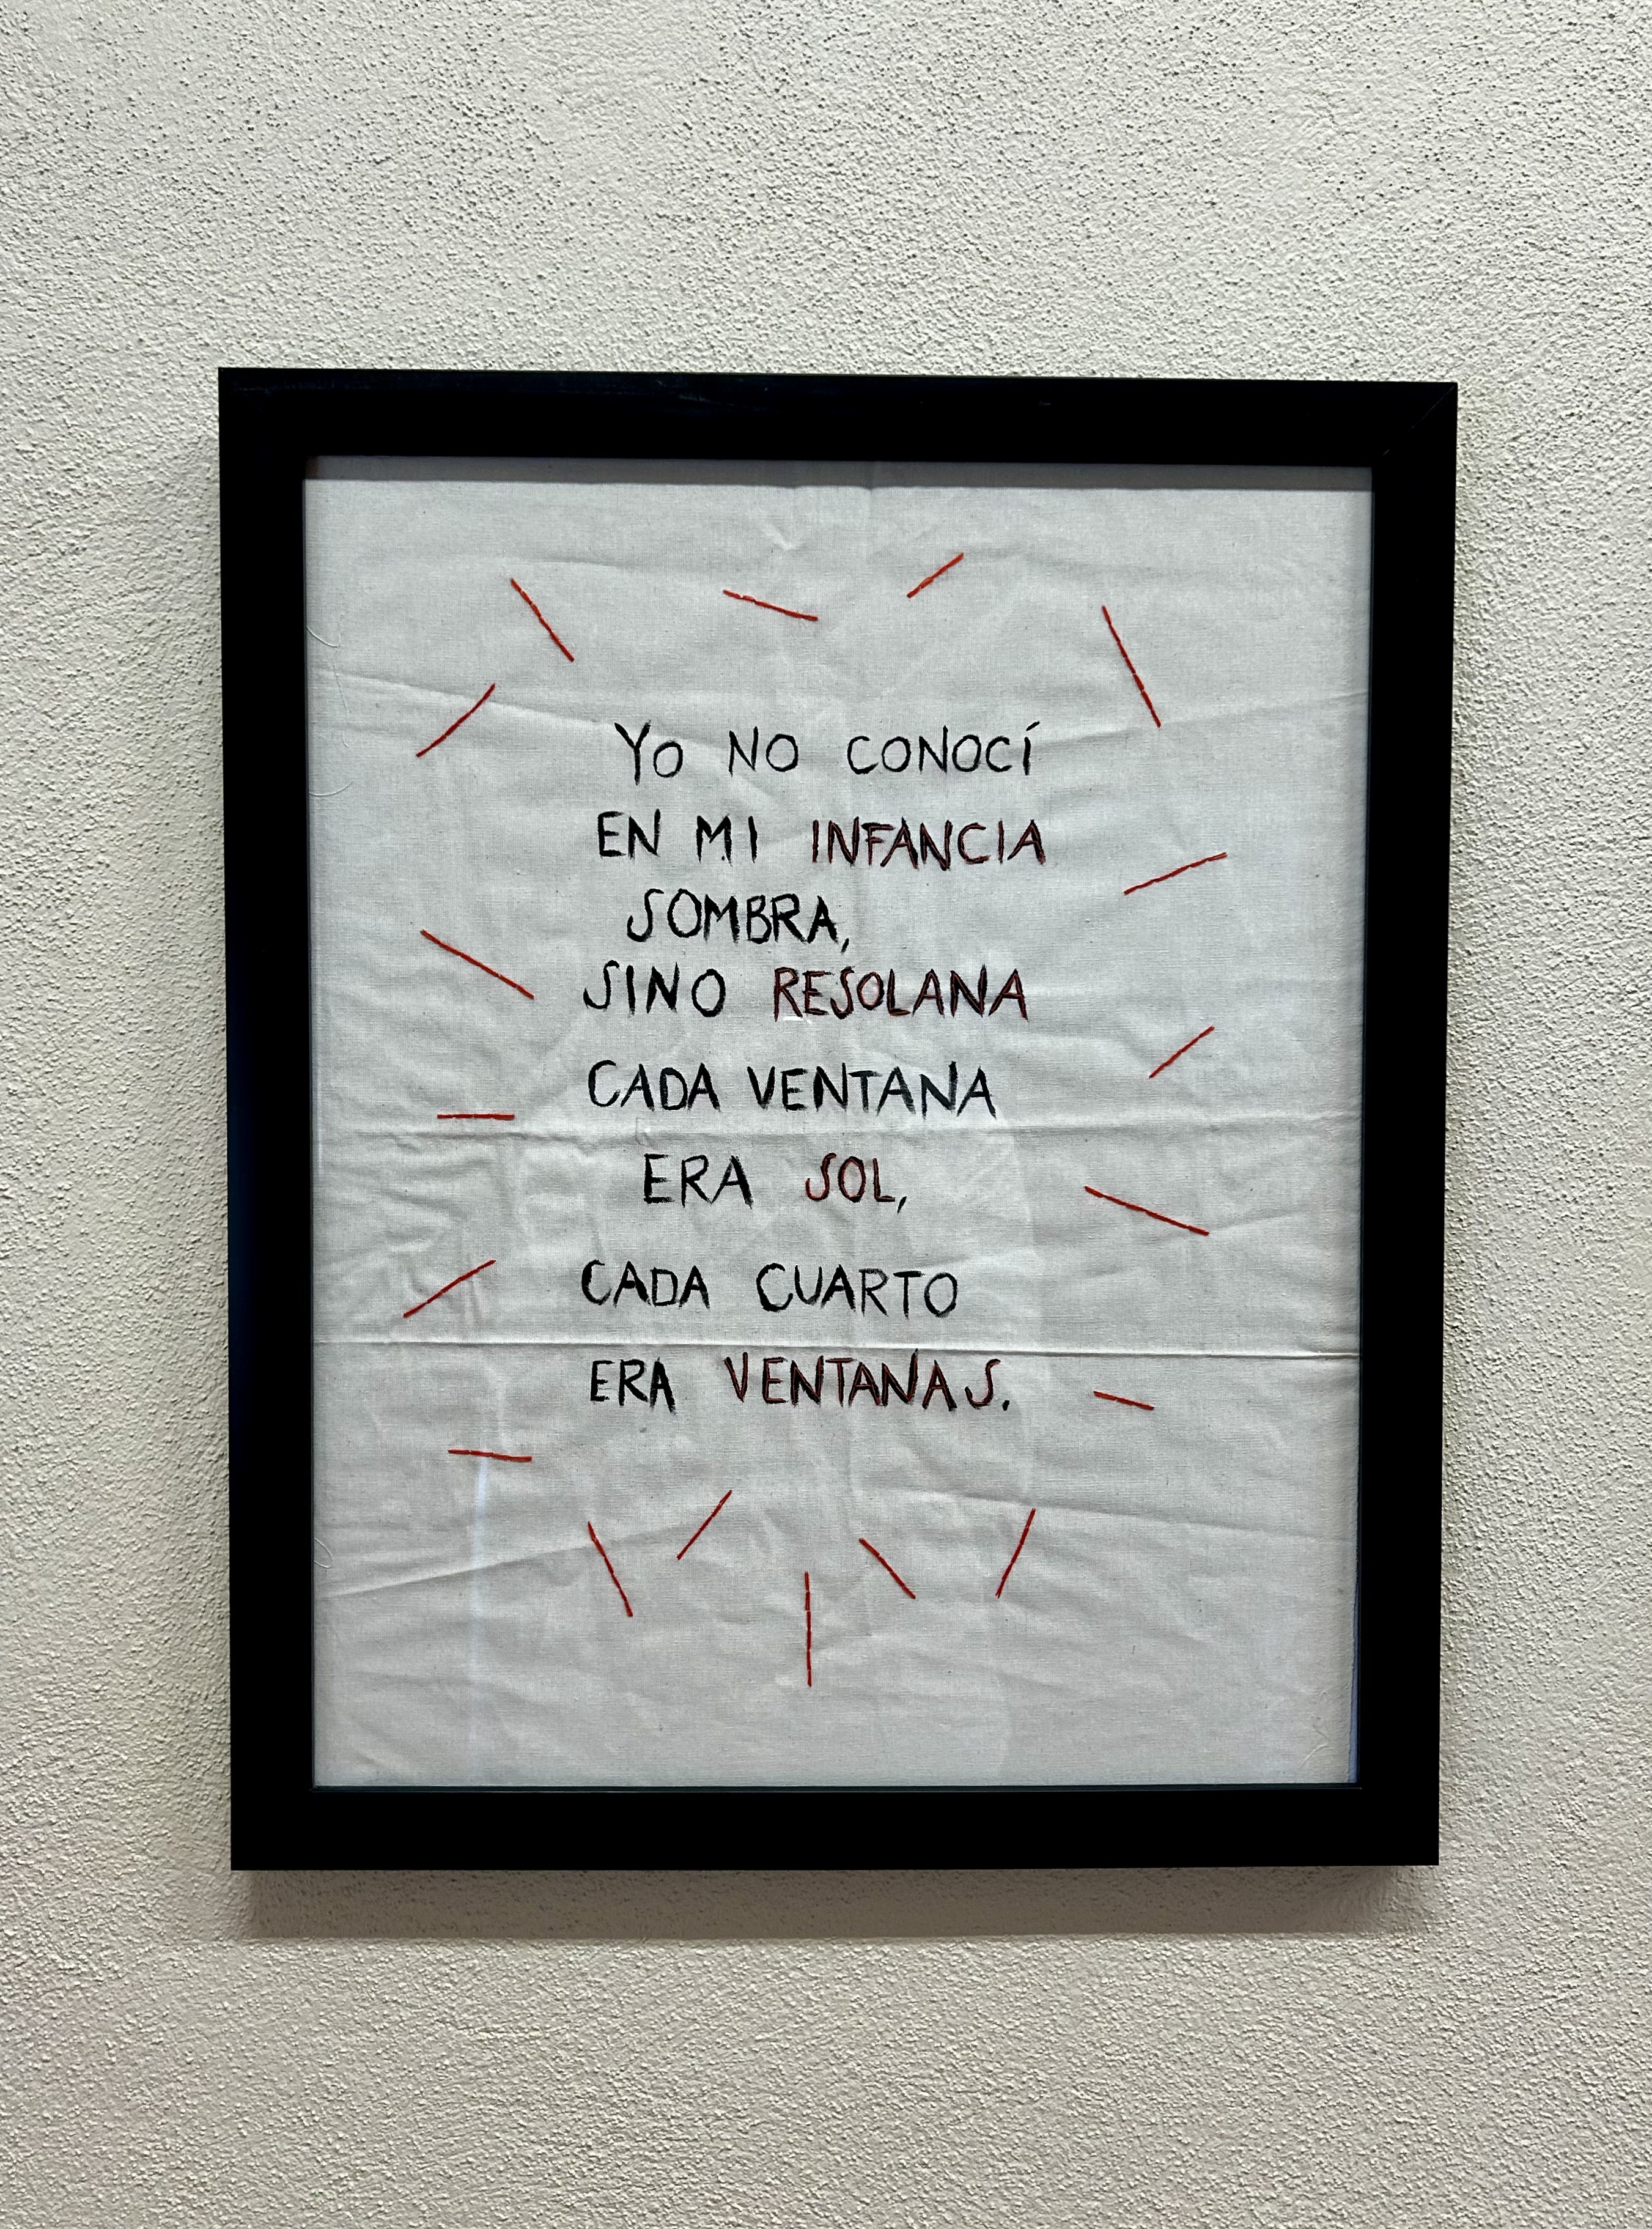 YO NO CONOCÍ
EN MI INFANCIA
SOMBRA,
SINO RESOLANA
CADA VENTANA
ERA SOL,
CADA CUARTO
ERA VENTANAS.